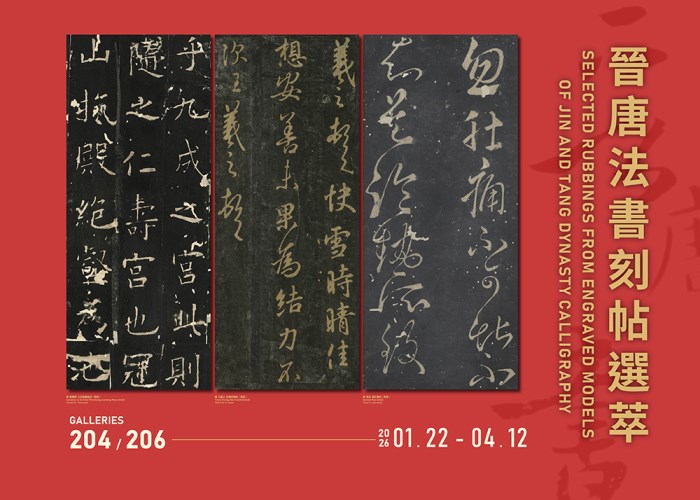 晉唐法書刻帖選萃
SELECTED RUBBINGS FROM ENGRAVED MODELS
OF JIN AND TANG DYNASTY CALLIGRAPHY
忽肚痛不可堪不
知是冷熱所致
羲之頓首快雪時晴佳
想安善未果為結力不
次王羲之頓首
乎九成之宮此則
隨之仁壽宮也冠
山抗殿絕壑為池
GALLERIES
204 / 206
2026 01.22 - 04.12